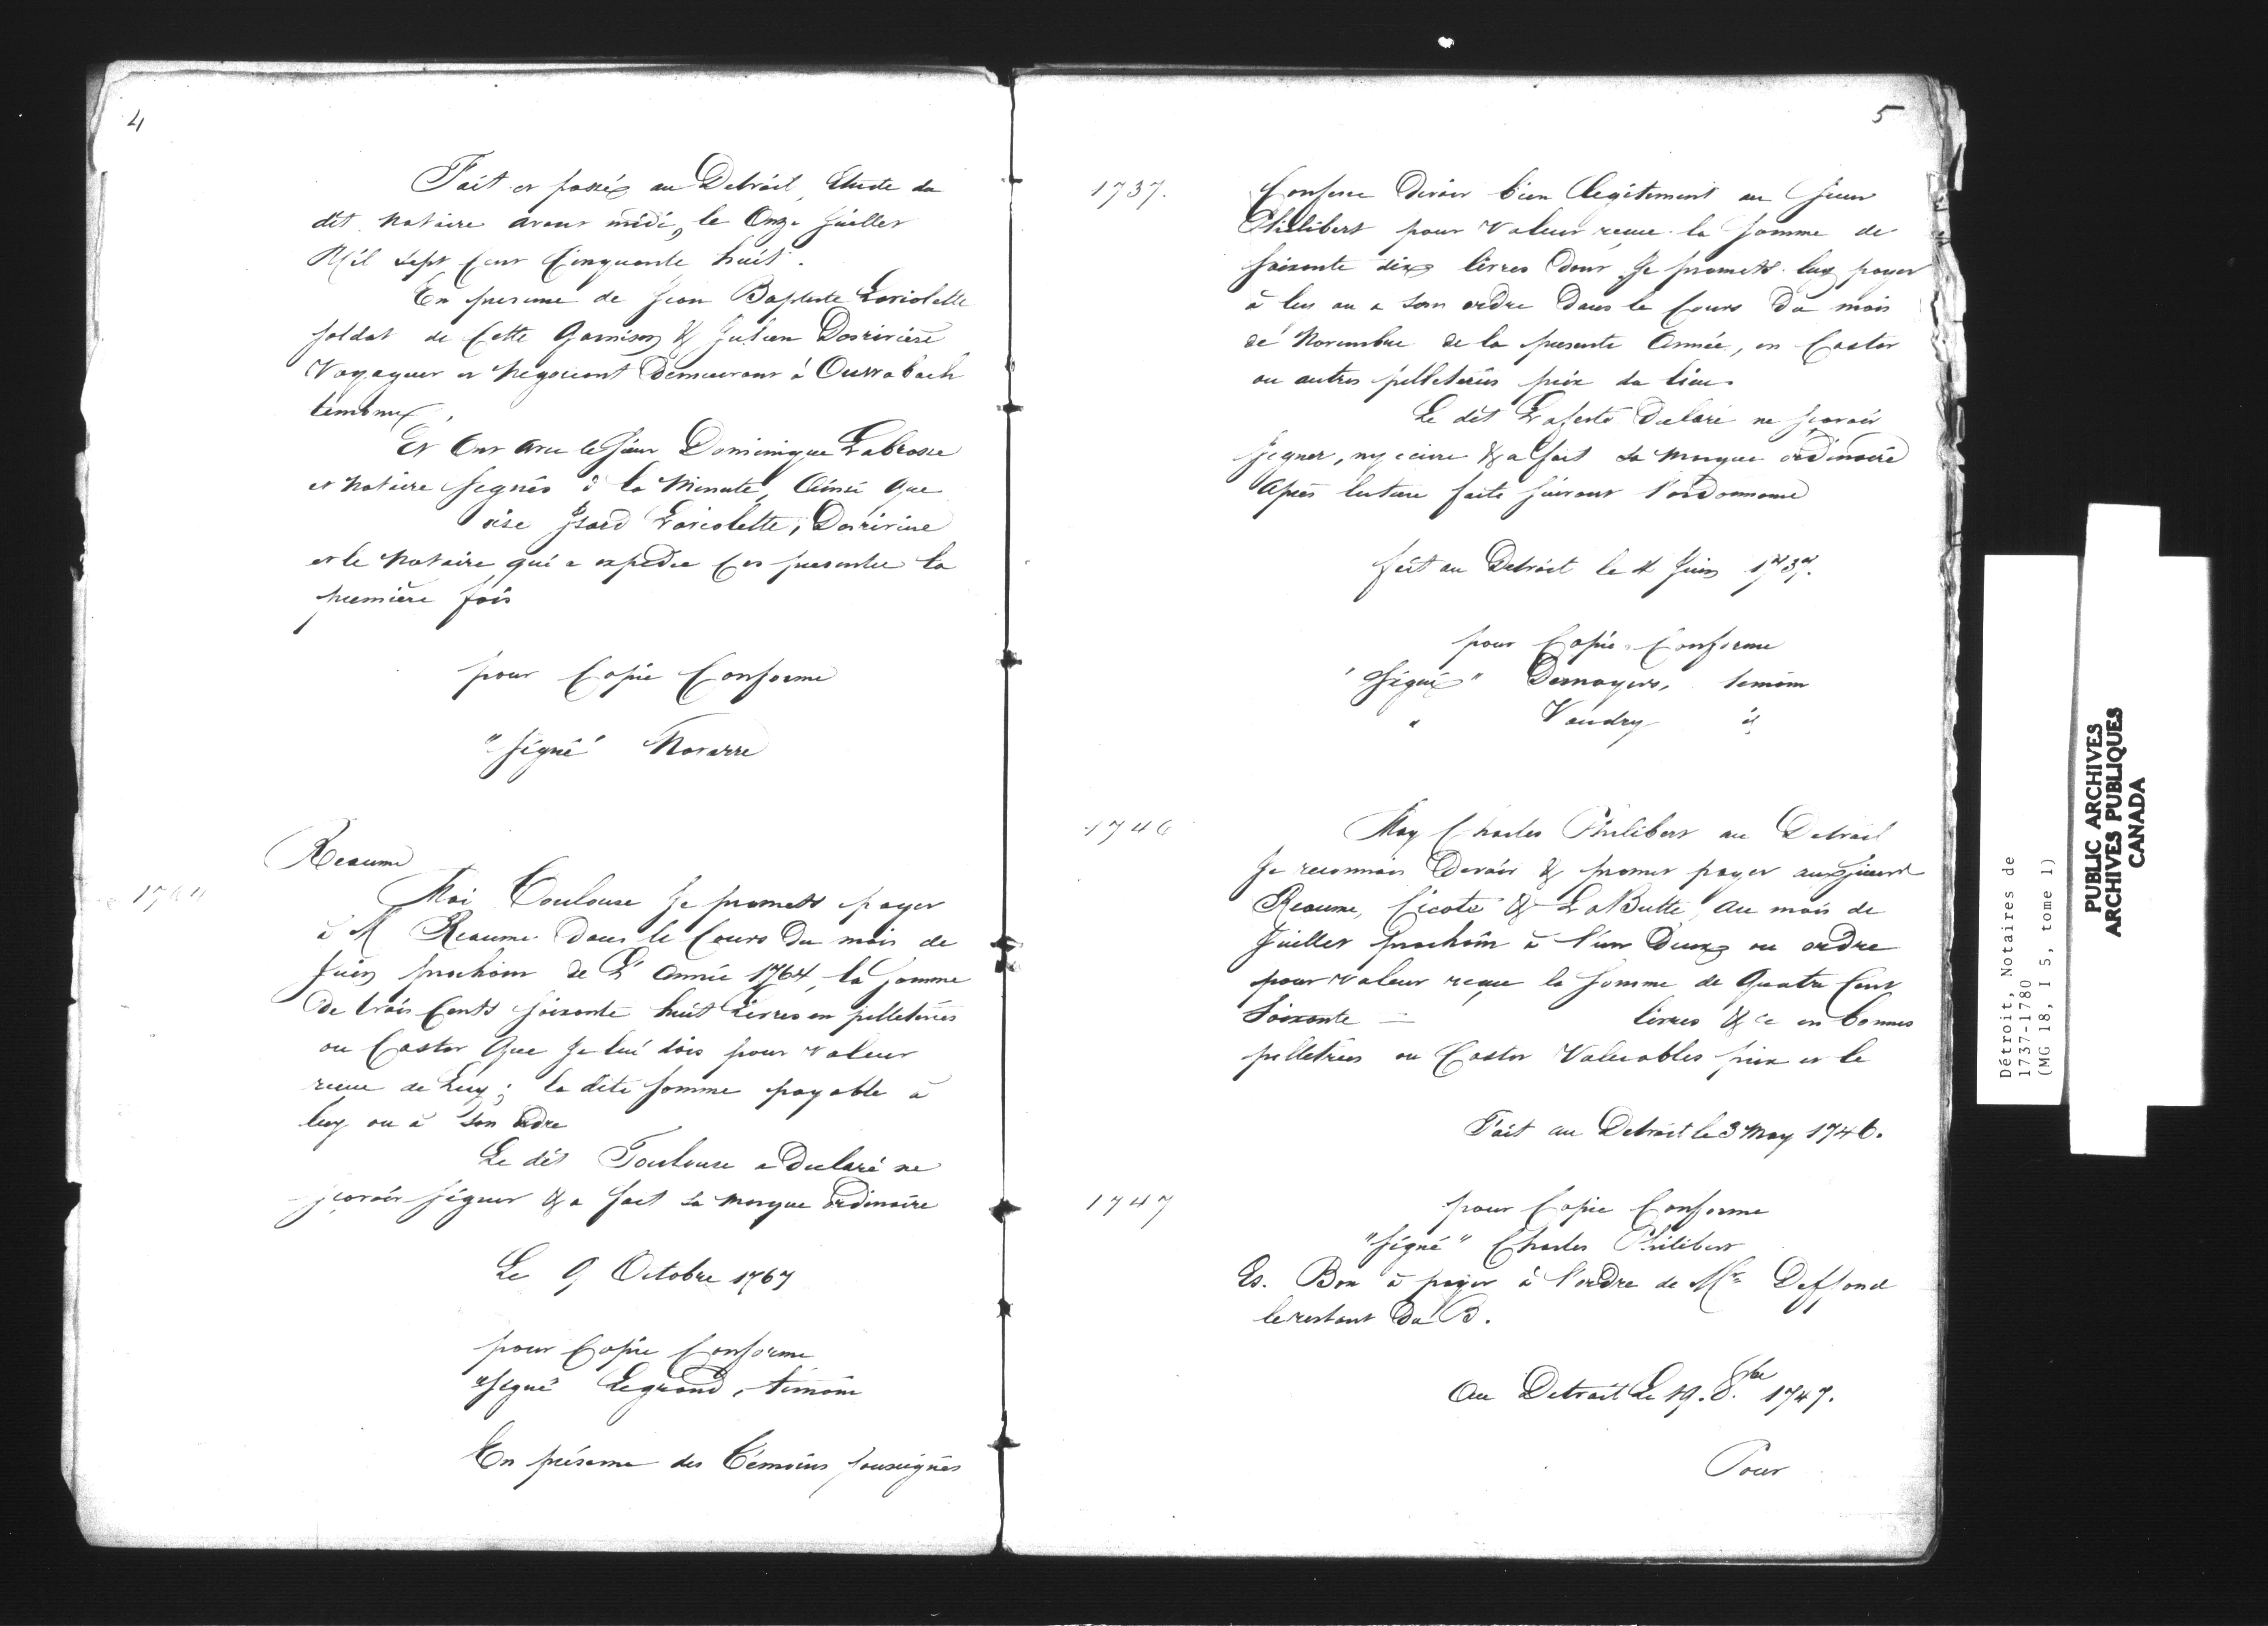 4
Fait et passé au Detroit, Etude du
dit Notaire avant midi, le Onze Juillet
Mil Sept Cent Cinquante huit.
En presence de Jean Baptiste Loriolette
soldat de Cette Garnison & Julien Desriviere
Voyageur et Negociant Demeurant à Ouwabach
temoins,
Et Ont avec le Sieur Dominique Labrosse
et Notaire Signés à la Minute, Ainsi Que
Isard Loriolette, Desriviere
et le Notaire qui a expediee Ces presentes la
première fois
pour Copie Conforme
"Signé" Navarre
Reaume
1764
Moi Toulouse Je promets payer
à M Reaume dans le Cours du mois de
Juin prochain de L'Année 1764, la Somme
de trois Cents soixante huit Livres en pelleteries
ou Castor Que Je lui dois pour valeur
recue de Luy; la dite Somme payable à
luy ou à Son Ordre
Le dit Toulouse a Declaré ne
sçavoir signer & a fait sa marque ordinaire
Le 9 Octobre 1767
pour Copie Conforme
"Signé" Legrand, témoin
En présence des Témoins soussignés
5
1737.
Confesse Devoir bien Legitement au Sieur
Philibert pour Valeur recue la Somme de
soixante dix livres dont Je promets luy payer
à luy ou a son ordre Dans le Cours Du mois
de Novembre de la presente Année, en Castor
ou autres pelleteries prix du lieu.
Le dit Laferté Declare ne sçavoir
signer, ny ecrire & a fait sa marque ordinaire
Après lecture faite suivant l'ordonnance
fait au Detroit le 4 Juin 1737.
pour Copie Conforme
"Signé" Desnoyers, temoin
" Vaudry id
1746
Moy Charles Philibert au Detroit
Je reconnois Devoir & promet payer aux Sieurs
Reaume, Cicote & LaButte, Au mois de
Juillet prochain à l'un Deux ou ordre
pour valeur reçue la Somme de Quatre Cent
Soixante — livres &ce en bonnes
pelletries ou Castor Valuables prix et le
Fait au Detroit le 3 May 1746.
1747
pour Copie Conforme
"Signé" Charles Philibert
Es. Bon à payer à l'ordre de Mr Deffond
le restant Du B.
Au Detroit Le 19. 8.bre 1747.
Pour
Détroit, Notaires de
1737-1780
(MG 18, I 5, tome 1)
PUBLIC ARCHIVES
ARCHIVES PUBLIQUES
CANADA